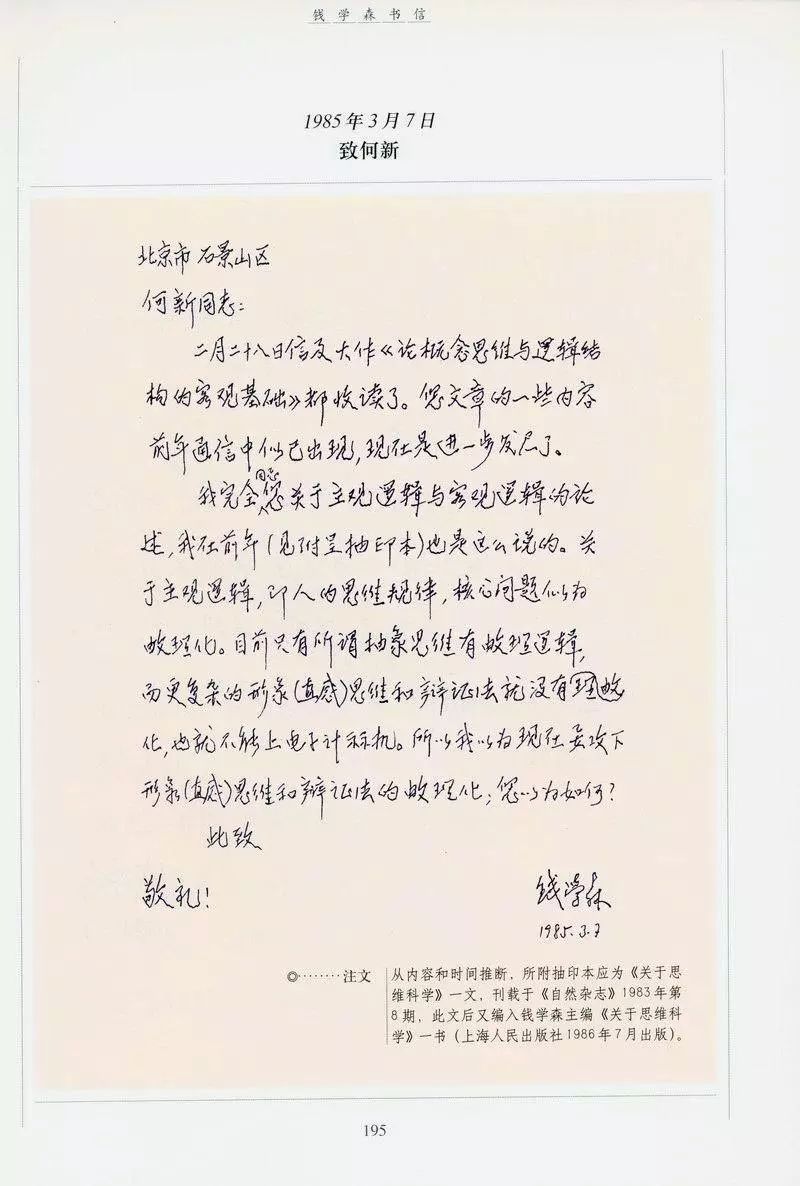 钱学森书信
1985年3月7日
致何新
北京市 石景山区
何新同志：
二月二十八日信及大作《论概念思维与逻辑结
构的客观基础》都收读了。您文章的一些内容
前年通信中似已出现，现在是进一步发展了。
同志
我完全您关于主观逻辑与客观逻辑的论
述，我在前年（见附呈抽印本）也是这么说的。关
于主观逻辑，即人的思维规律，核心问题似为
数理化。目前只有所谓抽象思维有数理逻辑，
而更复杂的形象（直感）思维和辩证法就没有数理
化，也就不能上电子计标机。所以我以为现在要攻下
形象（直感）思维和辩证法的数理化；您以为如何？
此致
敬礼！
钱学森
1985.3.7
◎········注文
从内容和时间推断，所附抽印本应为《关于思
维科学》一文，刊载于《自然杂志》1983年第
8期，此文后又编入钱学森主编《关于思维科
学》一书（上海人民出版社1986年7月出版）。
195